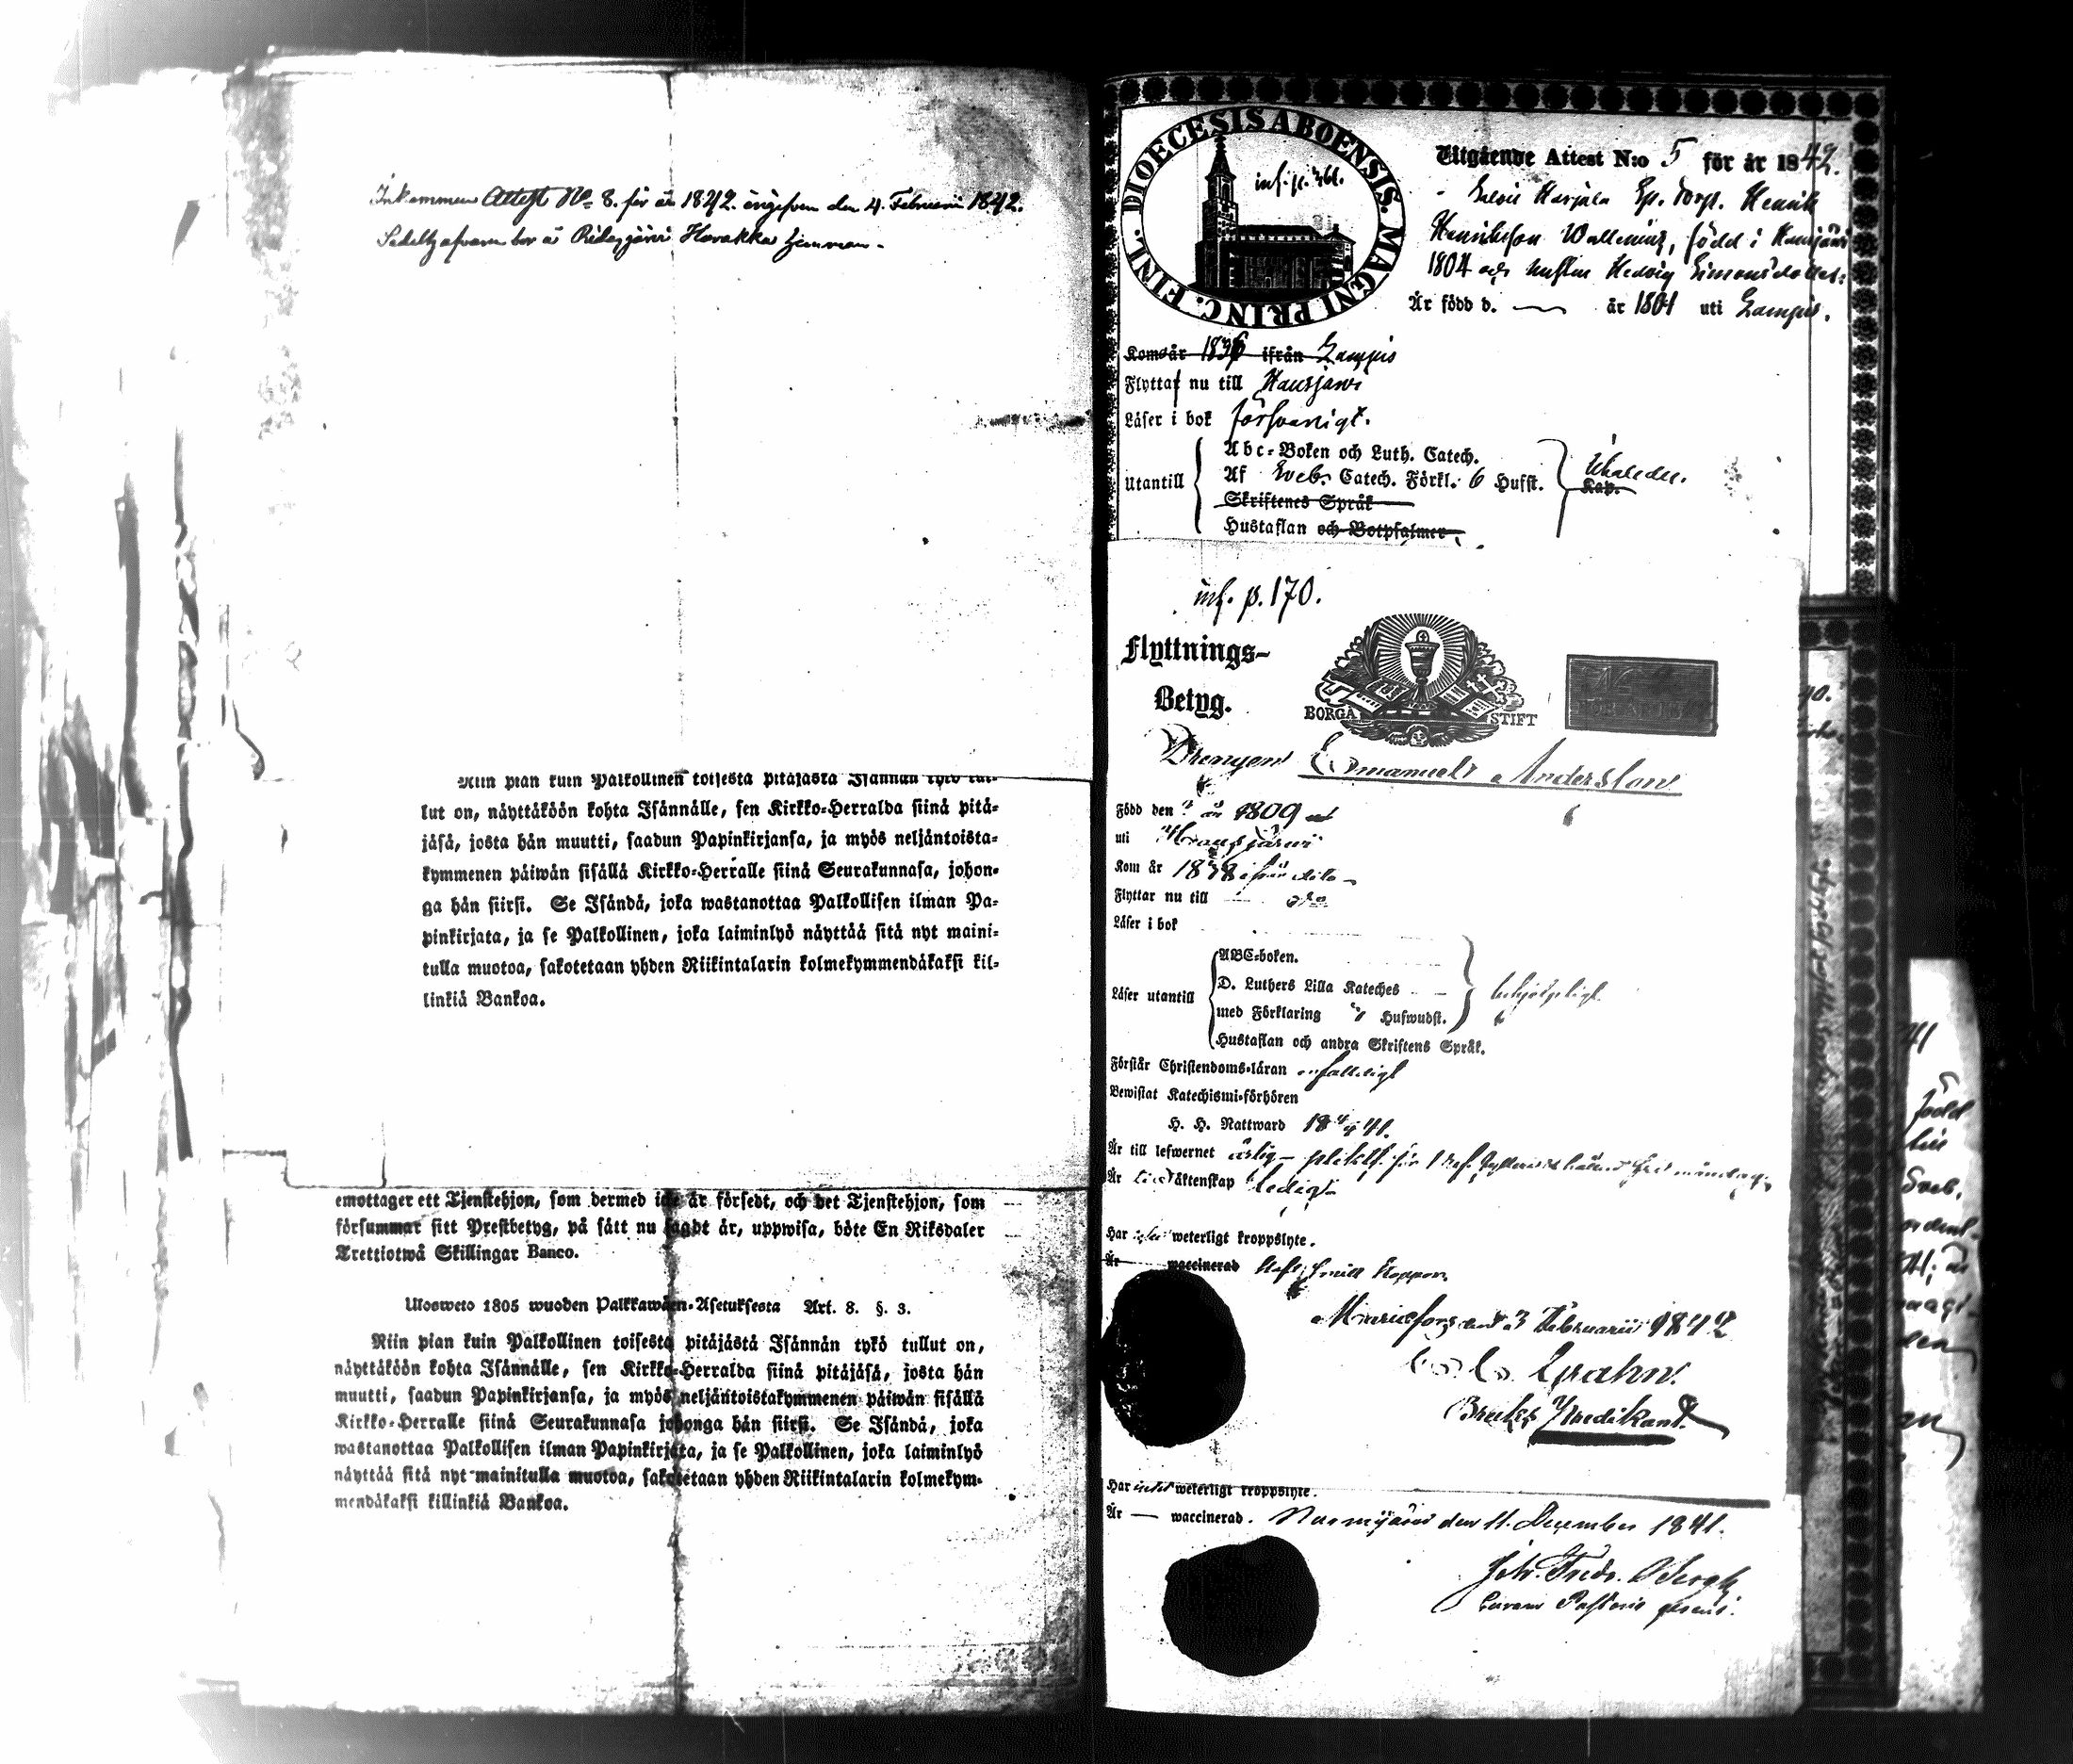 Inkommen Attest No 8. för år 1842. ingifven den 4. Februari 1842.
bor å Ridasjärvi Harakka
Niin pian kuin Palkollinen toisesta pitäjästä Isännän tykö tul-
lut on, näyttäköön kohta Isännälle, sen Kirkko-Herralda siinä pitä-
jäsä, josta hän muutti, saadun Papinkirjansa, ja myös neljäntoista-
kymmenen päiwän sisällä Kirkko-Herralle siinä Seurakunnasa, johon-
ga hän siirsi. Se Isändä, joka wastanottaa Palkollisen ilman Pa-
pinkirjata, ja se Palkollinen, joka laiminlyö näyttää sitä nyt maini-
tulla muotoa, sakotetaan yhden Riikintalarin kolmekymmendäkaksi kil-
linkiä Bankoa.
emottager ett Tjenstehjon, som dermed icke är försedt, och det Tjenstehjon, som
försummar sitt Prestbetyg, på sätt nu sagdt är, uppwisa, böte En Riksdaler
Trettiotwå Skillingar Banco.
Ulosweto 1805 wuoden Palkkawäen-Asetuksesta Art. 8. §. 3.
Niin pian kuin Palkollinen toisesta pitäjästä Isännän tykö tullut on,
näyttäköön kohta Isännälle, sen Kirkko-Herralda siinä pitäjäsä, josta hän
muutti, saadun Papinkirjansa, ja myös neljäntoistakymmenen päiwän sisällä
Kirkko-Herralle siinä Seurakunnasa johonga hän siirsi. Se Isändä, joka
wastanottaa Palkollisen ilman Papinkirjata, ja se Palkollinen, joka laiminlyö
näyttää sitä nyt mainitulla muotoa, sakotetaan yhden Riikintalarin kolmekym-
mendäkaksi killinkiä Bankoa.
DIOECESIS ABOENSIS. MAGNI PRINC. FINL.
inf. p. 361.
Utgående Attest N:o 5 för år 1842.
Harjula Torp. Henrik
Henriksson Wallenius, född i Hausjärvi
1804 och hustru Hedvig Simonsdotter.
Är född d. — år 1801 uti Lampis.
Kom år 1836 ifrån Lampis
Flyttar nu till Hausjärvi
Läser i bok försvarligt.
Utantill
Abc-Boken och Luth. Catech.
Af Sveb. Catech. Förkl. 6 Hufst.
Skriftenes Språk
Hustaflan och Botpsalmer
Kap.
inf. p. 170.
Flyttnings-
Betyg.
BORGÅ STIFT
Drengen Emanuel Andersson
Född den ? år 1809
uti Hausjärvi
Kom år 1838 ifrån dito
Flyttar nu till
Läser i bok
Läser utantill
ABC-boken.
D. Luthers Lilla Kateches
med Förklaring Hufwudst.
Hustaflan och andra Skriftens Språk.
behjelpligt
Förstår Christendoms-läran enfaldeligt
Bewistat Katechismi-förhören
H. H. Nattward
Är till lefwernet ärlig
Är äktenskap ledig
Har weterligt kroppslyte.
Är waccinerad Haft koppor.
Mariefors den 3 Februarii 1842
Grahn.
Bruks Predikant.
Har intet weterligt kroppslyte.
Är — waccinerad. Nurmijärvi den 11. December 1841.
Joh. Fredr. Bergh